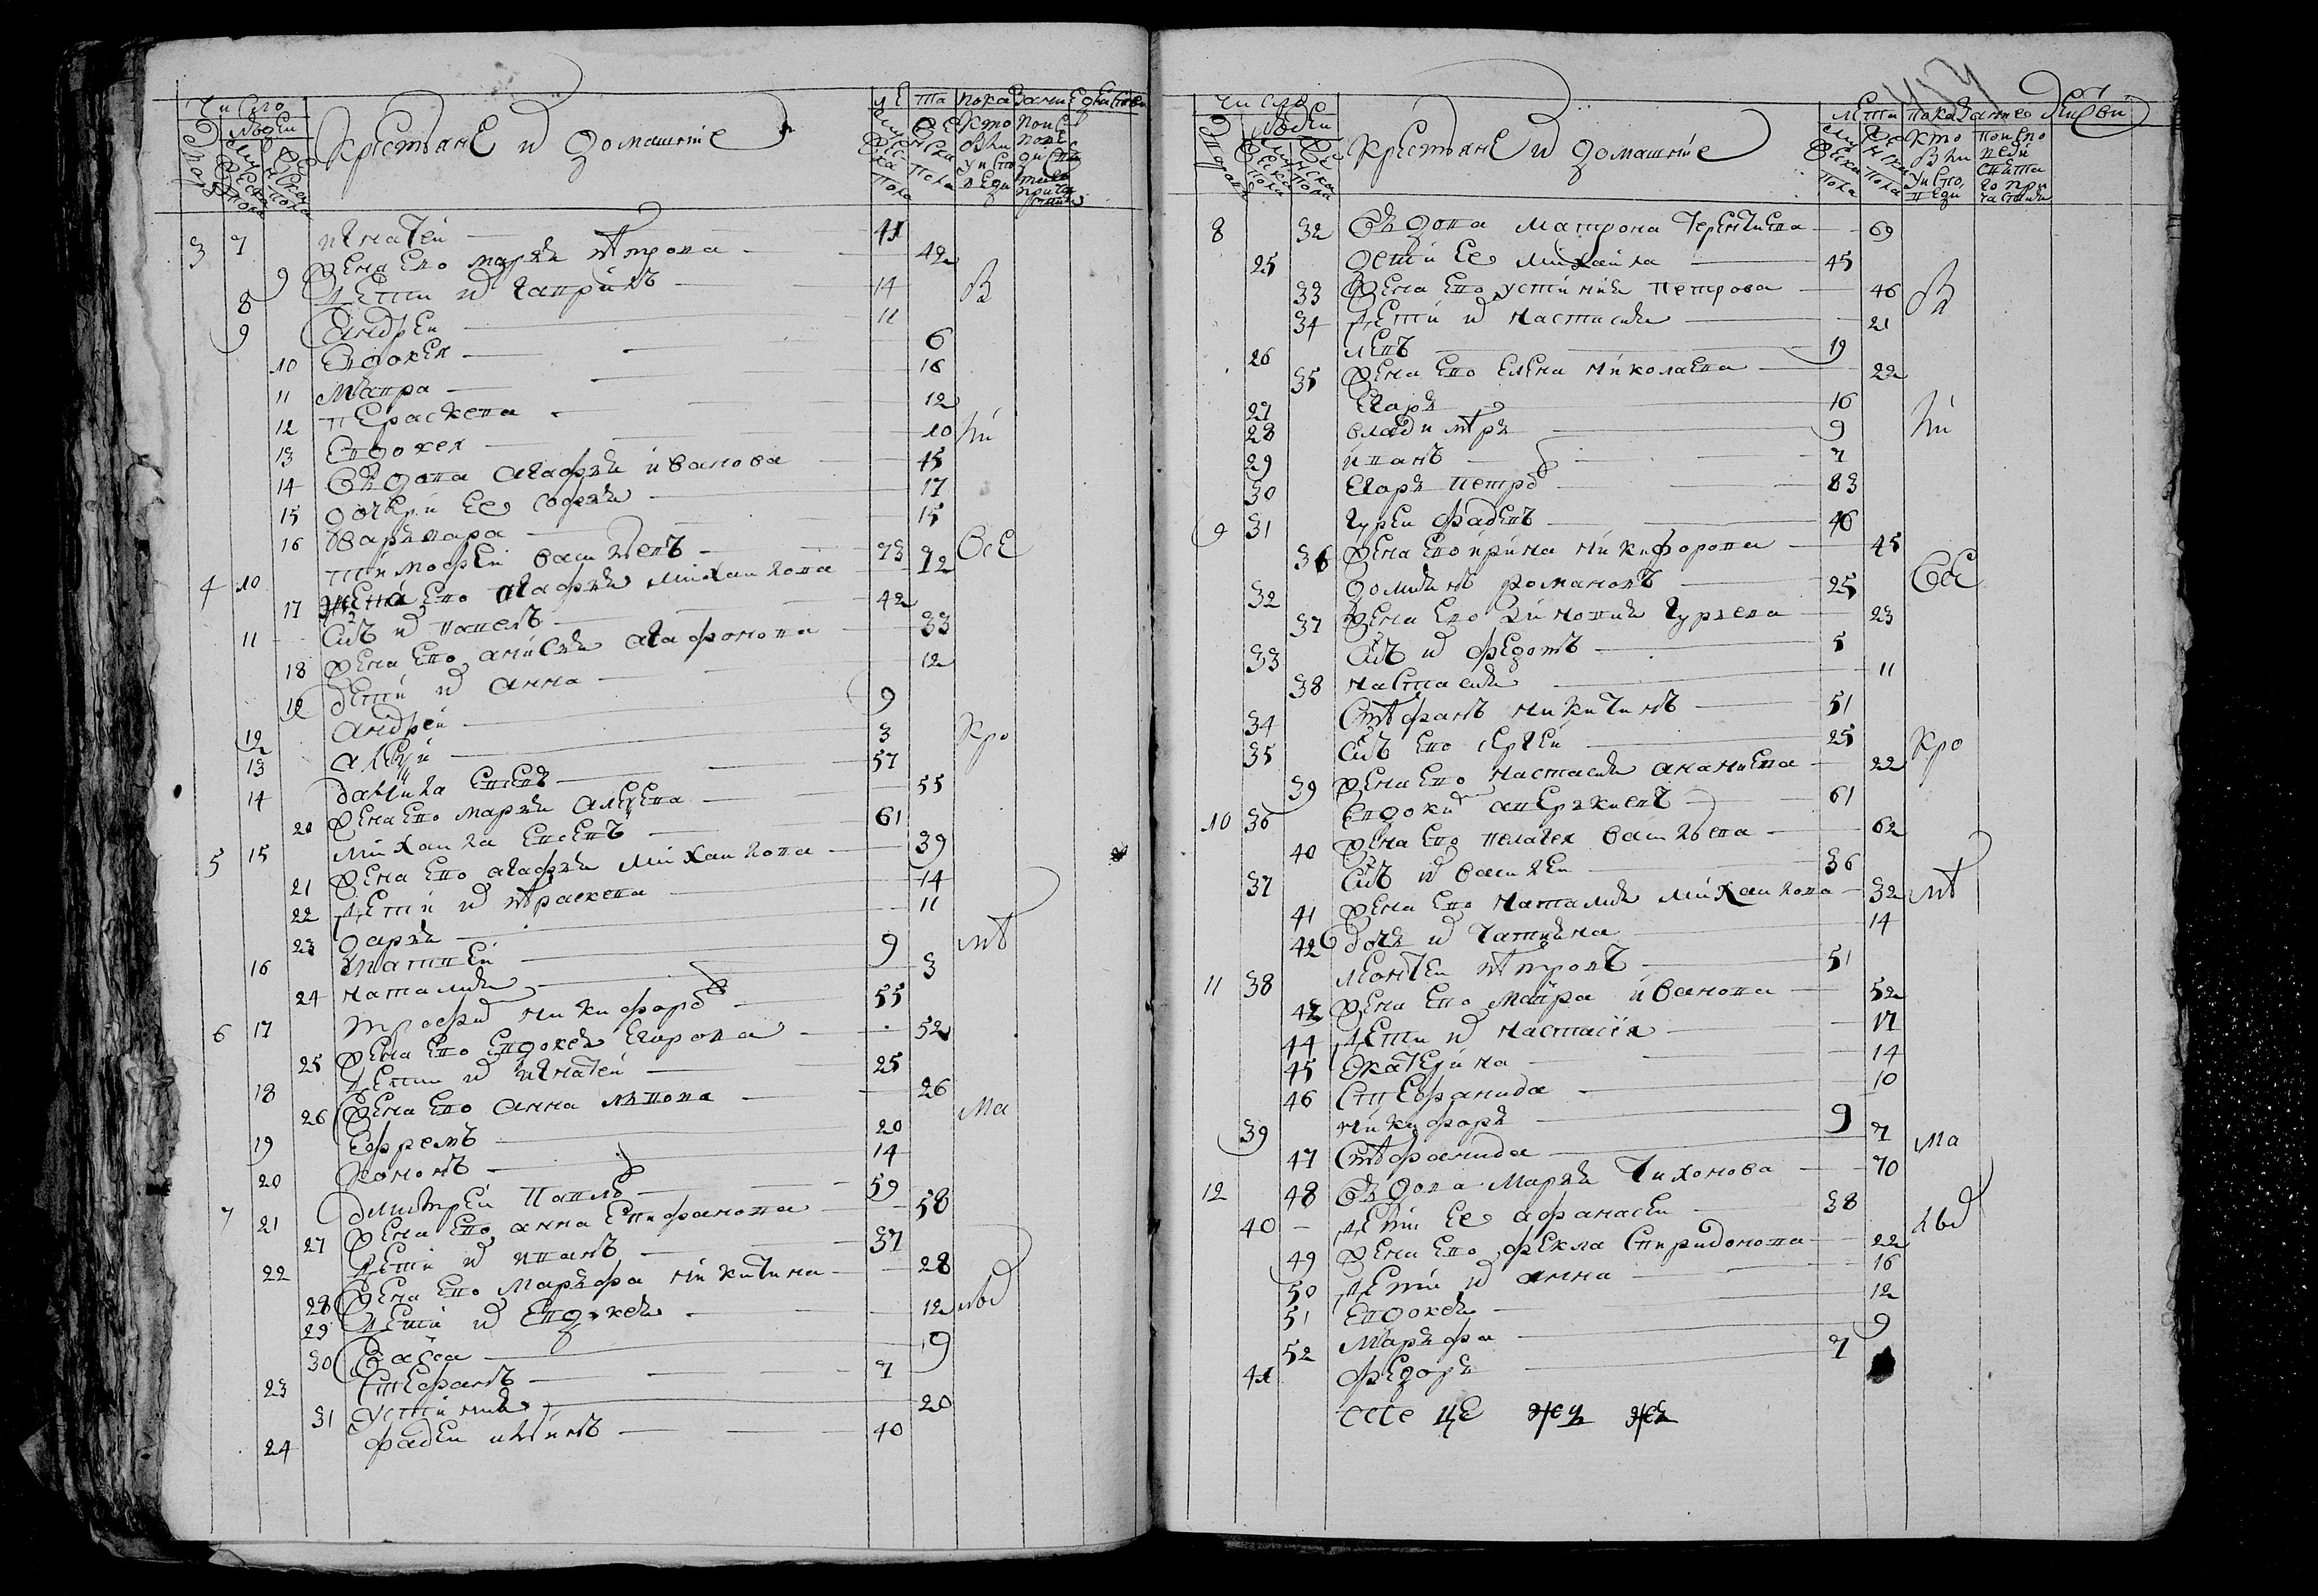 Число
людей
Крестьянѣ и домашние
лѣ та показание действ
3 7 Игнатей — 41
9 жена ево марья петрова — 42
8 дѣти их гаприлъ — 14
9 Андрей — 11
10 Евдокея — 6
11 Мавра — 16
12 Пераскева — 12
13 Евдокея — 10
14 Вдова агафья иванова — 45
15 дочери ее софья — 17
16 варьвара — 15
4 10 тимофей васильевъ — 73
17 жена ево агафья михаилова — 72
11 Сынъ их павелъ — 42
18 жена ево анисья агафонова — 33
19 дети их анна — 12
12 андрей — 9
13 алексѣй — 3
14 данила евсевъ — 57
20 жена ево марья алексѣева — 55
5 15 михаила евсевъ — 61
21 жена ево агафья михаилова — 39
22 дѣти их праскева — 14
23 дарья — 11
16 матвей — 9
24 наталия — 3
6 17 трофим никифоров — 55
25 жена ево евдокея егорова — 52
18 дѣти их игнатей — 25
26 жена ево анна львова — 26
19 ефремъ — 20
20 кононъ — 14
7 21 дмитрей павлов — 59
27 жена ево анна епифанова — 58
22 дѣти их иванъ — 37
28 жена ево марьфа никитина — 28
29 дѣти их евдокея — 12
30 васса — 9
23 стефанъ — 7
31 устиния — 20
24 фадей ильинъ — 40
В
ли
все
кро
мѣ
ма
лых
Число
людей
Крестьянѣ и домашние
лѣта показание действ
8 32 Вдова матрона терентиева — 69
25 дети ее михайла — 45
33 жена ево устиния петрова — 46
34 дѣти их настасия — 21
26 левъ — 19
35 жена ево елена николаева — 22
27 егоръ — 16
28 владимѣръ — 9
29 иванъ — 7
30 егоръ петров — 83
9 31 гурей фадевъ — 46
36 жена ево ирина никифорова — 45
32 домианъ романовъ — 25
37 жена ево зиновия гурьева — 23
33 Сынъ их федотъ — 5
38 настасия — 11
34 Стефанъ никитинъ — 51
35 Сынъ ево сергей — 25
39 жена ево настасия ананиева — 22
10 36 евдоким аверькиевъ — 61
40 жена ево пелагея васильева — 62
37 Сынъ их василей — 36
41 жена ево наталия михаилова — 32
42 дочь их татияна — 14
11 38 леонтей петровъ — 51
43 жена ево мавра иванова — 52
44 дѣти их настасия — 17
45 екатерина — 14
46 стефанида — 10
39 никифоръ — 9
47 Стефанида — 7
12 48 вдова марья тихонова — 70
40 дѣти ее афанасей — 38
49 жена ево фекла спиридонова — 22
50 дѣти их анна — 16
51 евдокея — 12
52 марьфа — 9
41 федоръ — 7
В
ли
все
кро
мѣ
ма
лых